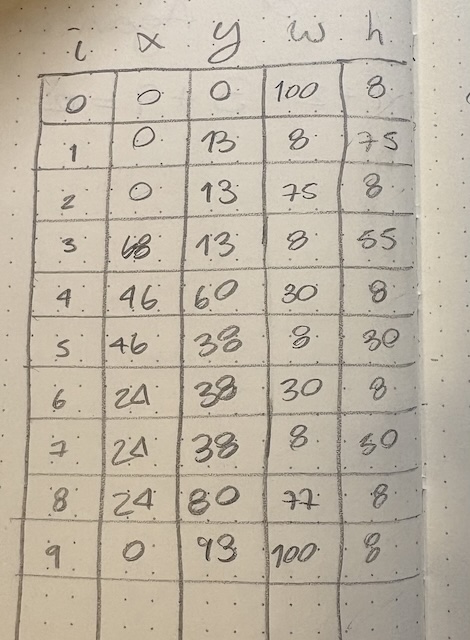 i x y w h
0 0 0 100 8
1 0 13 8 75
2 0 13 75 8
3 68 13 8 55
4 46 60 30 8
5 46 38 8 30
6 24 38 30 8
7 24 38 8 50
8 24 80 77 8
9 0 93 100 8